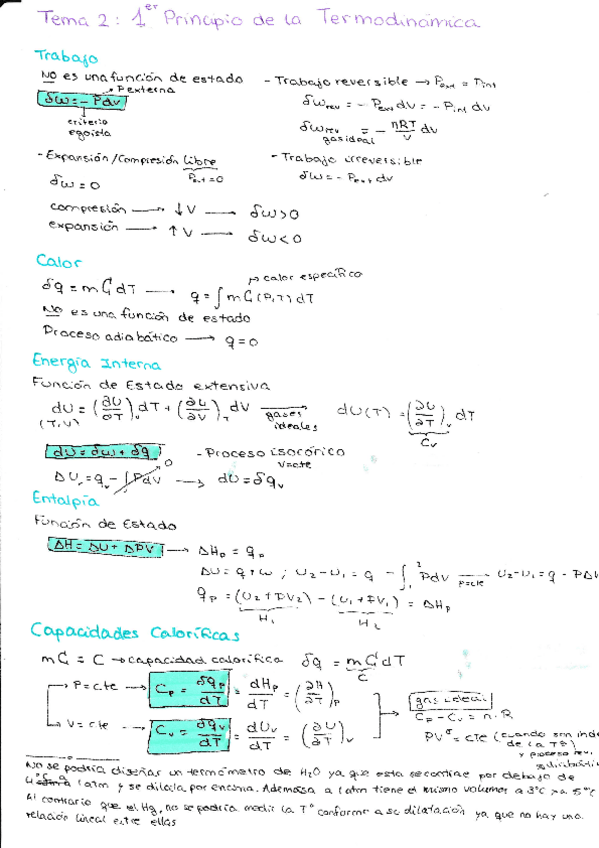 Tema 2: 1er Principio de la Termodinámica
Trabajo
NO es una función de estado
P externa
δw = - Pdv
criterio
egoista
- Trabajo reversible → Pext = Pint
δwrev = - Pext dV = - Pint dv
δwrev = - nRT/V dv
gas ideal
- Expansión / Compresión libre
Pext = 0
δw = 0
- Trabajo irreversible
δw = - Pext dv
compresión → ↓V → δw>0
expansión → ↑V → δw<0
Calor
calor específico
δq = mĈdT → q = ∫mĈ(P,T)dT
NO es una función de estado
Proceso adiabático → q=0
Energía Interna
Función de Estado extensiva
dU = (∂U/∂T)v dT + (∂U/∂V)T dV → gases ideales dU(T) = (∂U/∂T)v dT
(T,V)
Cv
dU = δw + δq
- Proceso isocórico
V=cte
ΔUv = qv - ∫Pdv 0 → dU = δqv
Entalpía
Función de Estado
ΔH = ΔU + ΔPV → ΔHp = qp
ΔU = q + w ; U2-U1 = q - ∫₁² Pdv P=cte U2-U1 = q - PΔV
qp = (U2+PV2) - (U1+PV1) = ΔHp
H1 H2
Capacidades Caloríficas
mĈ = C → capacidad calorífica δq = mĈdT
C
P=cte → Cp = δqp/dT = dHp/dT = (∂H/∂T)p
V=cte → Cv = δqv/dT = dUv/dT = (∂U/∂T)v
gas ideal
Cp - Cv = n·R
PVᵞ = cte (cuando son inde
de la Tª)
y proceso rev.
No se podría diseñar un termómetro de H2O ya que esta se contrae por debajo de
1 atm y se dilata por encima. Además a 1 atm tiene el mismo volumen a 3°C
Al contrario que el Hg, no se podría medir la Tª conforme a su dilatación ya que no hay una
relación lineal entre ellas